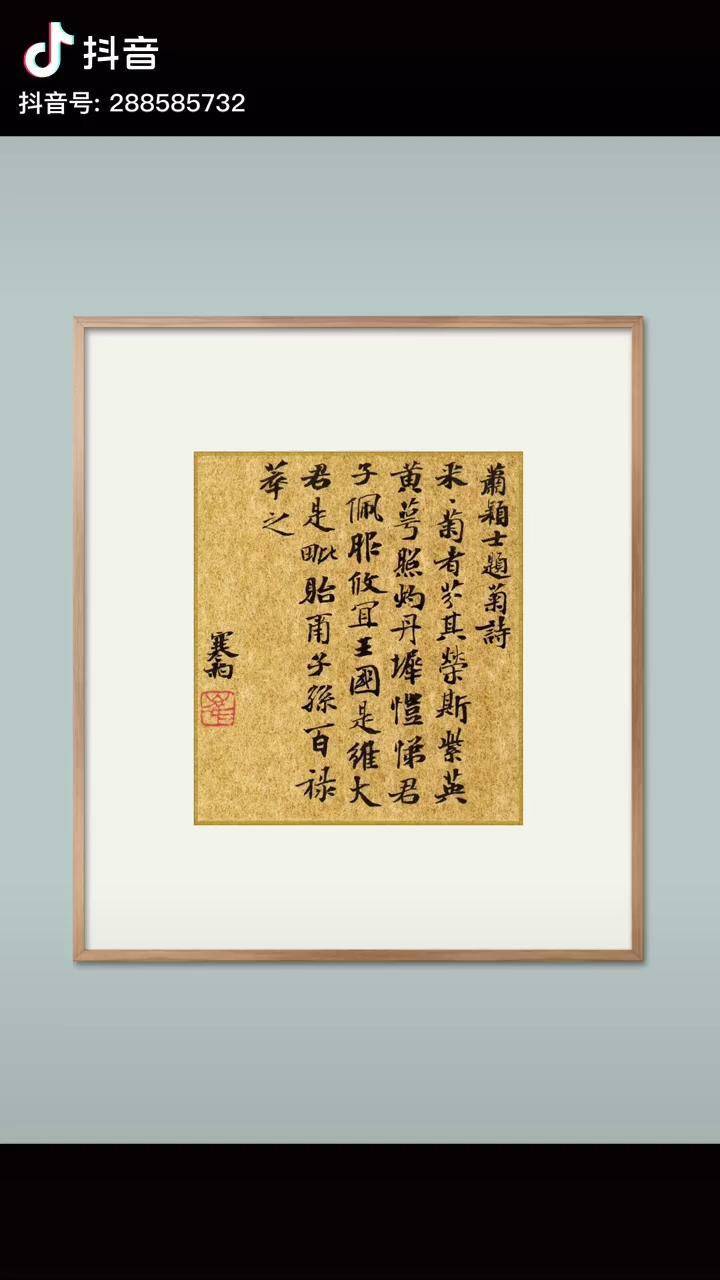 抖音
抖音号: 288585732
蕭穎士題菊詩
采〻菊者芬其榮斯紫英
黄萼照灼丹墀愷悌君
子佩服攸宜王國是維大
君是毗貽爾子孫百禄
萃之